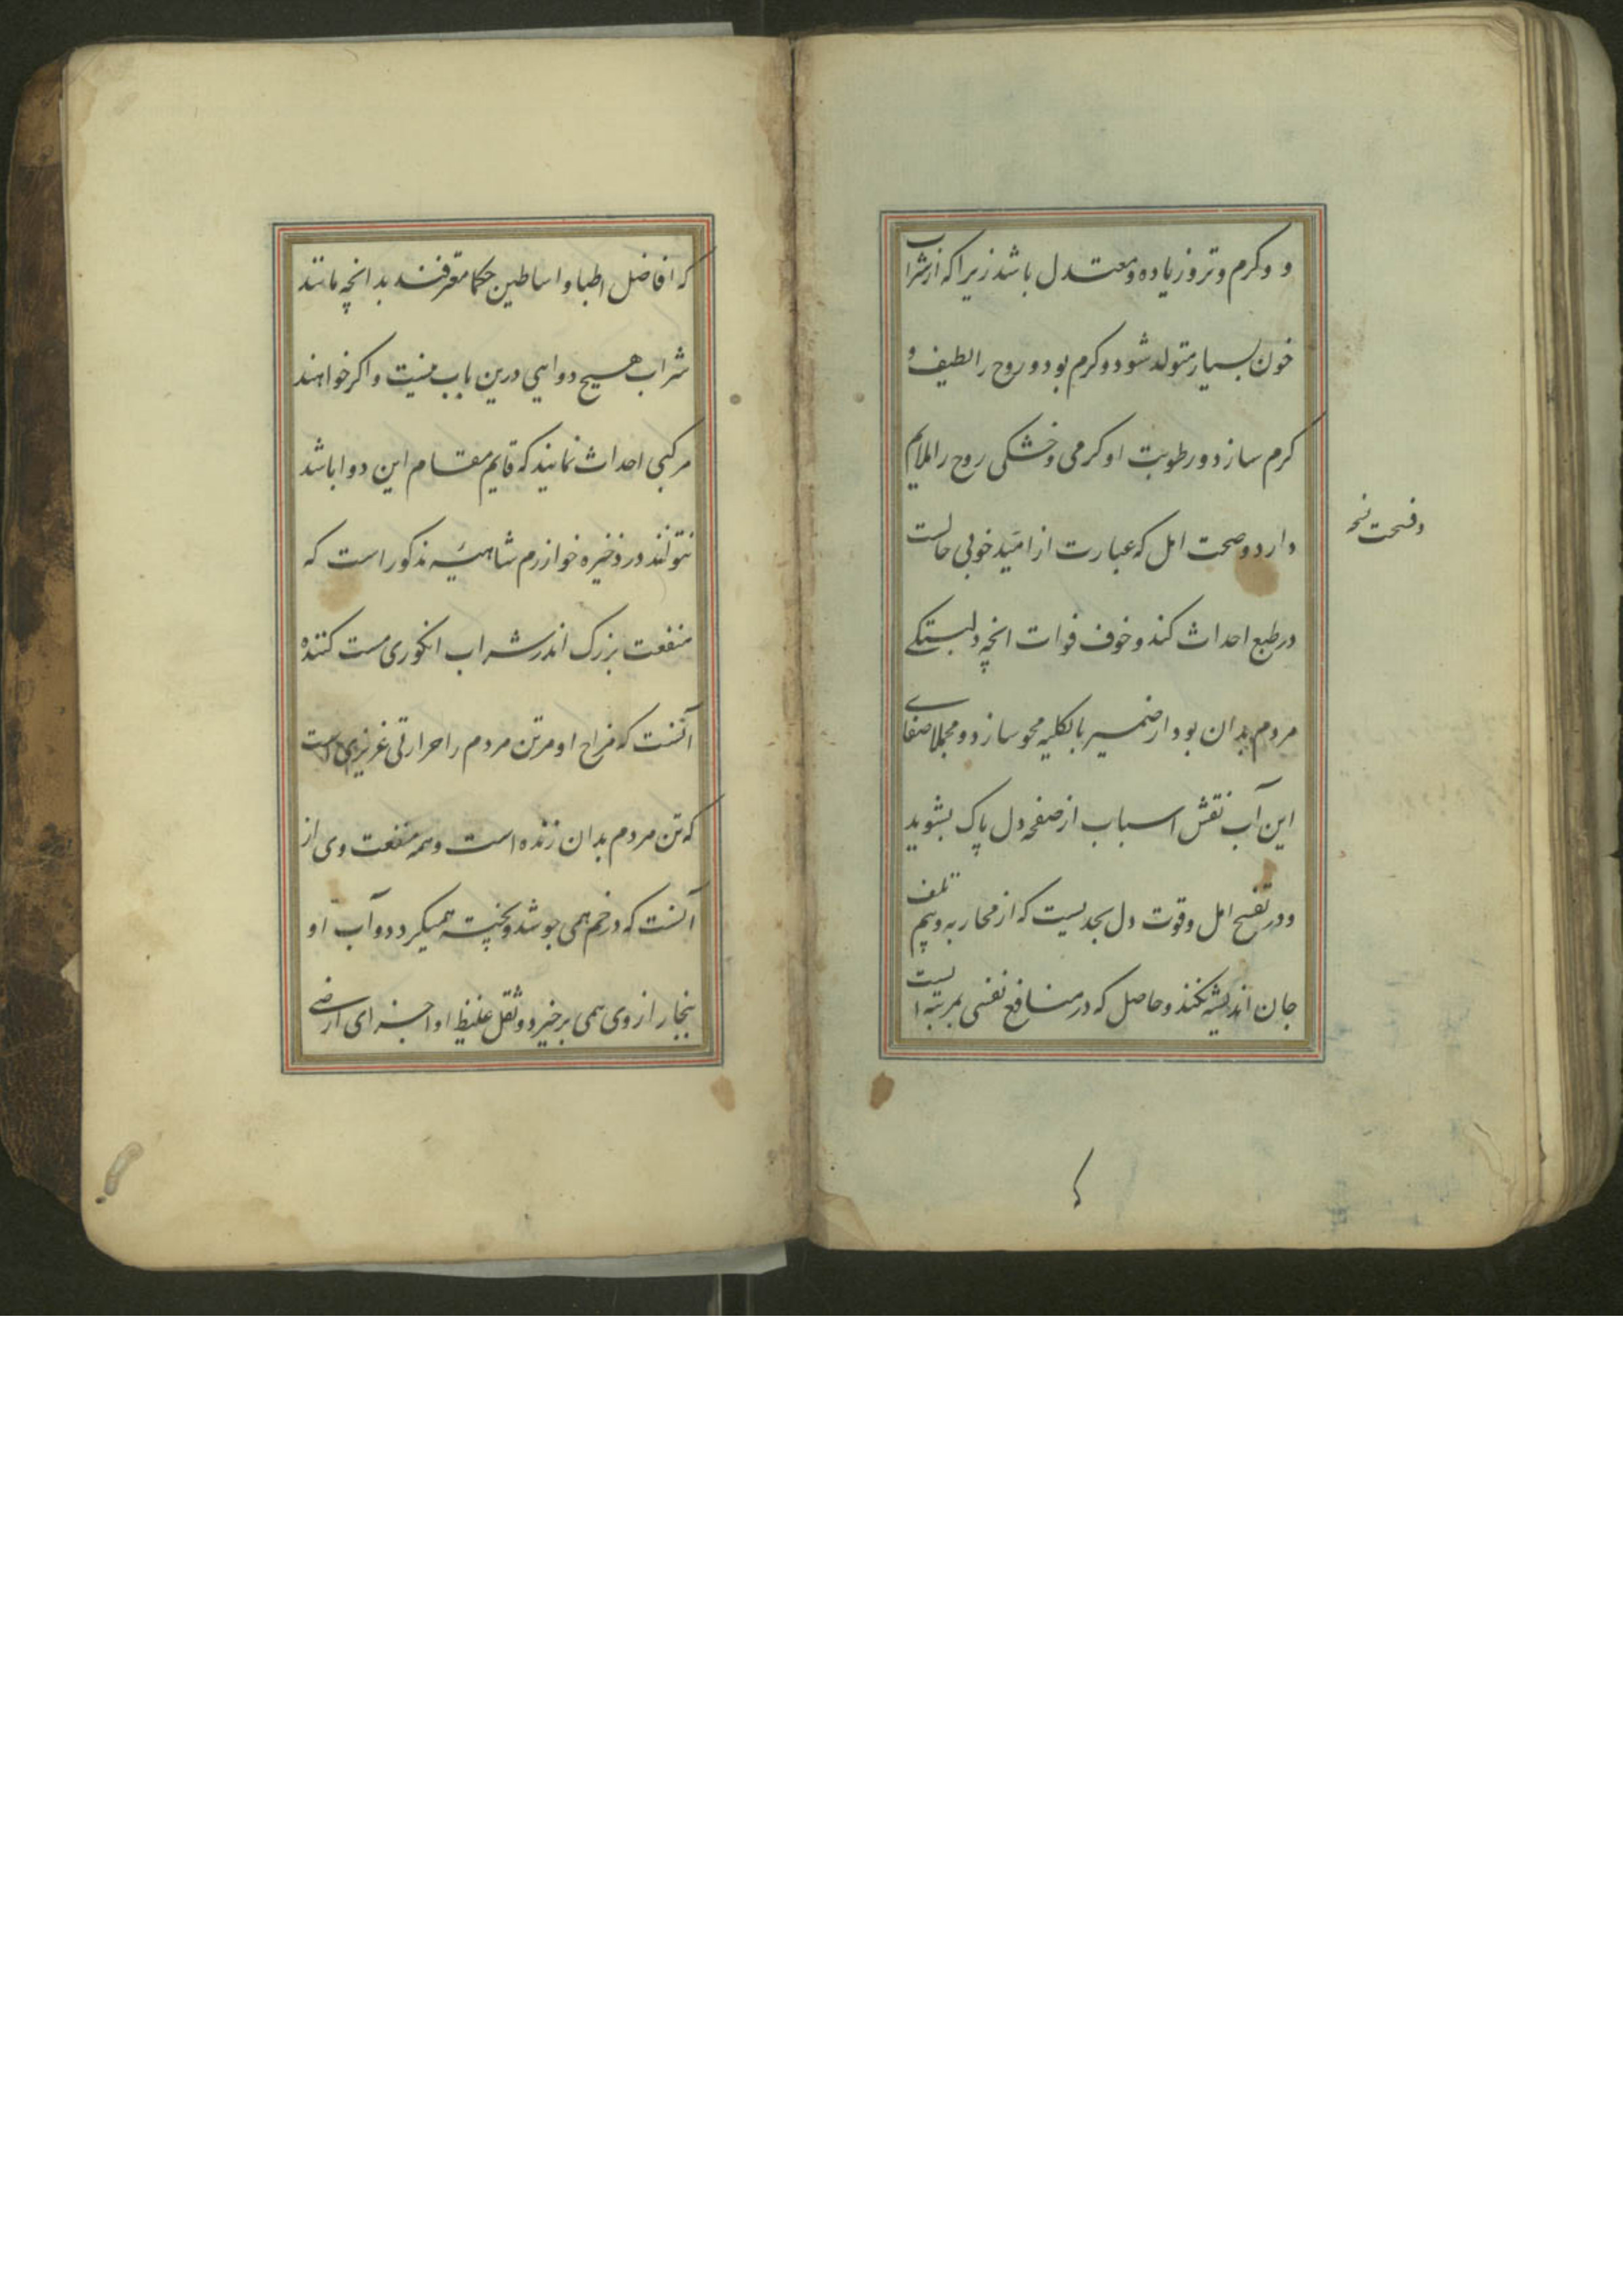 و وکرم وتر وزیاده ومعتدل باشد زیرا که از شراب
خون بسیار متولد شود وکرم بود وروح را لطیف و
کرم سازد ورطوبت او کرمی وخشکی روح را ملایم
دارد وصحت امل که عبارت از امید خوبی حالست
وفسحت نخه
در طبع احداث کند وخوف فوات انچه دلبستکی
مردم بدان بود از ضمیر بالکلیه محو سازد ومجملا صفای
این آب نقش اسباب از صفحه دل پاک بشوید
ودر تفسیح امل وقوت دل بحدیست که از محاربه وبیم تلف
جان اندیشه نکند وحاصل که در منافع نفسی بمرتبه ایست
که افاضل اطبا واساطین حکما معترفند بدانچه مانند
شراب هیچ دوایی درین باب نیست واکر خواهند
مرکبی احداث نمایند که قایم مقام این دوا باشد
نتوانند در ذخیره خوارزم شاهیه مذکور است که
منفعت بزرک اندر شراب انکوری مست کننده
آنست که مزاج او مرتن مردم را حرارتی غریزی است
که تن مردم بدان زنده است وهمه منفعت وی از
آنست که در خم همی جوشد وپخته همیکردد وآب او
بخار از وی همی برخیزد وثقل غلیظ او واجزای ارضی